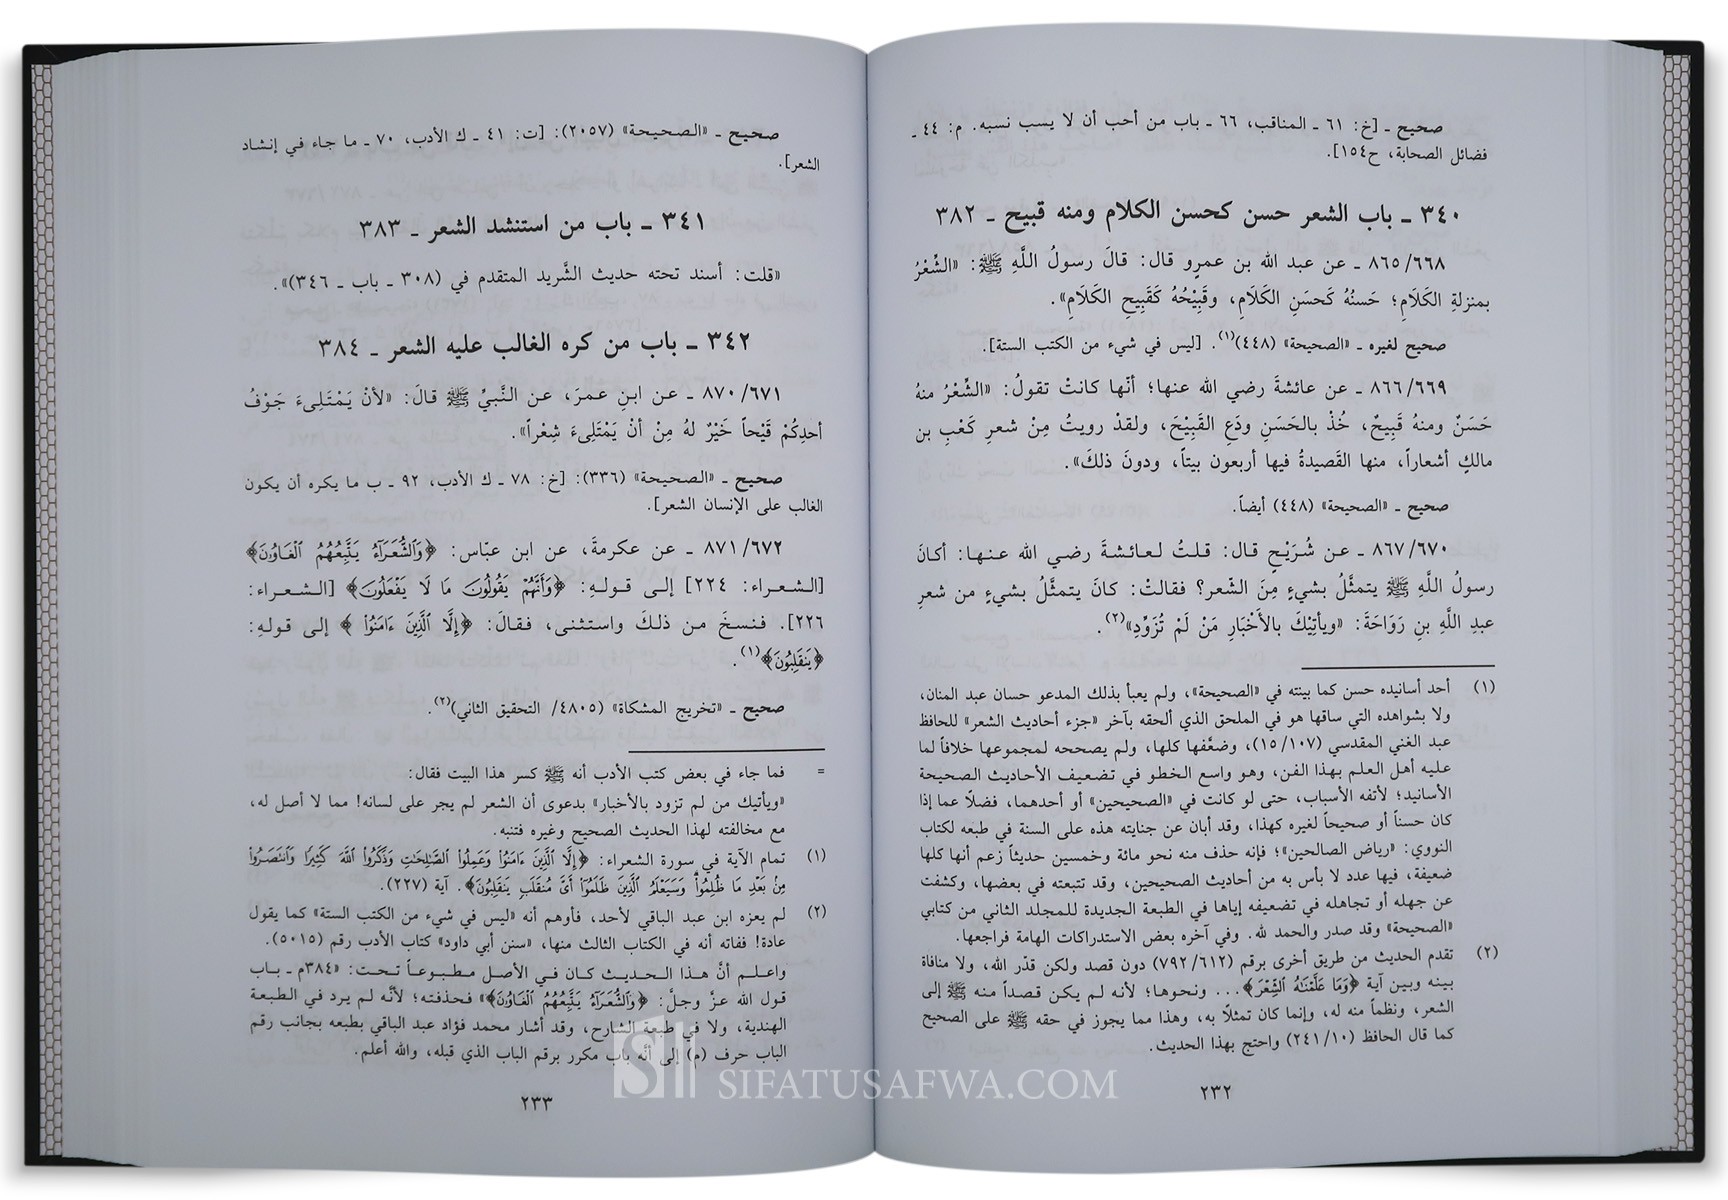 صحيح ـ [خ: ٦١ ـ المناقب، ٦٦ ـ باب من أحب أن لا يسب نسبه. م: ٤٤ ـ
فضائل الصحابة، ح١٥٤].
٣٤٠ ـ باب الشعر حسن كحسن الكلام ومنه قبيح ـ ٣٨٢
٨٦٥/٦٦٨ ـ عن عبد الله بن عمرٍو قال: قالَ رسولُ اللَّهِ ﷺ: «الشِّعْرُ
بمنزلةِ الكَلَامِ؛ حَسنُهُ كَحسَنِ الكَلَامِ، وقَبِيْحُهُ كَقَبِيحِ الكَلَامِ».
صحيح لغيره ـ «الصحيحة» (٤٤٨)(١). [ليس في شيء من الكتب الستة].
٨٦٦/٦٦٩ ـ عن عائشةَ رضي الله عنها؛ أنّها كانتْ تقولُ: «الشِّعْرُ منهُ
حَسَنٌ ومنهُ قَبِيحٌ، خُذْ بالحَسَنِ ودَعِ القَبِيْحَ، ولقدْ رويتُ مِنْ شعرِ كَعْبِ بن
مالكٍ أشعاراً، منها القَصيدةُ فيها أربعون بيتاً، ودونَ ذلكَ».
صحيح ـ «الصحيحة» (٤٤٨) أيضاً.
٨٦٧/٦٧٠ ـ عن شُرَيْحٍ قال: قلتُ لعائشةَ رضي الله عنها: أكانَ
رسولُ اللَّهِ ﷺ يتمثَّلُ بشيءٍ مِنَ الشّعر؟ فقالتْ: كانَ يتمثَّلُ بشيءٍ من شعرِ
عبدِ اللَّهِ بنِ رَوَاحَةَ: «ويأتِيْكَ بالأَخْبَارِ مَنْ لَمْ تُزَوِّدِ»(٢).
(١) أحد أسانيده حسن كما بينته في «الصحيحة»، ولم يعبأ بذلك المدعو حسان عبد المنان،
ولا بشواهده التي ساقها هو في الملحق الذي ألحقه بآخر «جزء أحاديث الشعر» للحافظ
عبد الغني المقدسي (١٥/١٠٧)، وضعَّفها كلها، ولم يصححه لمجموعها خلافاً لما
عليه أهل العلم بهذا الفن، وهو واسع الخطو في تضعيف الأحاديث الصحيحة
الأسانيد؛ لأتفه الأسباب، حتى لو كانت في «الصحيحين» أو أحدهما، فضلاً عما إذا
كان حسناً أو صحيحاً لغيره كهذا، وقد أبان عن جنايته هذه على السنة في طبعه لكتاب
النووي: «رياض الصالحين»؛ فإنه حذف منه نحو مائة وخمسين حديثاً زعم أنها كلها
ضعيفة، فيها عدد لا بأس به من أحاديث الصحيحين، وقد تتبعته في بعضها، وكشفت
عن جهله أو تجاهله في تضعيفه إياها في الطبعة الجديدة للمجلد الثاني من كتابي
«الصحيحة» وقد صدر والحمد لله. وفي آخره بعض الاستدراكات الهامة فراجعها.
(٢) تقدم الحديث من طريق أخرى برقم (٧٩٢/٦١٢) دون قصد ولكن قدّر الله، ولا منافاة
بينه وبين آية ﴿وَمَا عَلَّمْنَاهُ الشِّعْرَ﴾... ونحوها؛ لأنه لم يكن قصداً منه ﷺ إلى
الشعر، ونظماً منه له، وإنما كان تمثلاً به، وهذا مما يجوز في حقه ﷺ على الصحيح
كما قال الحافظ (٢٤١/١٠) واحتج بهذا الحديث.
٢٣٢
صحيح ـ «الصحيحة» (٢٠٥٧): [ت: ٤١ ـ ك الأدب، ٧٠ ـ ما جاء في إنشاد
الشعر].
٣٤١ ـ باب من استنشد الشعر ـ ٣٨٣
«قلت: أسند تحته حديث الشَّريد المتقدم في (٣٠٨ ـ باب ـ ٣٤٦)».
٣٤٢ ـ باب من كره الغالب عليه الشعر ـ ٣٨٤
٨٧٠/٦٧١ ـ عن ابنِ عمرَ، عن النَّبيِّ ﷺ قالَ: «لأنْ يَمْتَلِىءَ جَوْفُ
أحدِكُمْ قَيْحاً خَيْرٌ لهُ مِنْ أنْ يَمْتَلِىءَ شِعْراً».
صحيح ـ «الصحيحة» (٣٣٦): [خ: ٧٨ ـ ك الأدب، ٩٢ ـ ب ما يكره أن يكون
الغالب على الإنسان الشعر].
٨٧١/٦٧٢ ـ عن عكرمةَ، عن ابن عبّاس: ﴿وَالشُّعَرَآءُ يَتَّبِعُهُمُ الْغَاوُۥنَ﴾
[الشعراء: ٢٢٤] إلى قولهِ: ﴿وَأَنَّهُمْ يَقُولُونَ مَا لَا يَفْعَلُونَ﴾ [الشعراء:
٢٢٦]. فنسخَ من ذلكَ واستثنى، فقالَ: ﴿إِلَّا الَّذِينَ ءَامَنُوا﴾ إلى قولهِ:
﴿يَنقَلِبُونَ﴾(١).
صحيح ـ «تخريج المشكاة» (٤٨٠٥/ التحقيق الثاني)(٢).
= فما جاء في بعض كتب الأدب أنه ﷺ كسر هذا البيت فقال:
«ويأتيك من لم تزود بالأخبار» بدعوى أن الشعر لم يجر على لسانه! مما لا أصل له،
مع مخالفته لهذا الحديث الصحيح وغيره فتنبه.
(١) تمام الآية في سورة الشعراء: ﴿إِلَّا الَّذِينَ ءَامَنُوا وَعَمِلُوا الصَّالِحَاتِ وَذَكَرُوا اللَّهَ كَثِيرًا وَانتَصَرُوا
مِنۢ بَعْدِ مَا ظُلِمُوا وَسَيَعْلَمُ الَّذِينَ ظَلَمُوا أَيَّ مُنقَلَبٍ يَنقَلِبُونَ﴾. آية (٢٢٧).
(٢) لم يعزه ابن عبد الباقي لأحد، فأوهم أنه «ليس في شيء من الكتب الستة» كما يقول
عادة! ففاته أنه في الكتاب الثالث منها، «سنن أبي داود» كتاب الأدب رقم (٥٠١٥).
واعلم أنَّ هذا الحديث كان في الأصل مطبوعاً تحت: «٣٨٤م ـ باب
قول الله عزَّ وجلَّ: ﴿وَالشُّعَرَآءُ يَتَّبِعُهُمُ الْغَاوُۥنَ﴾» فحذفته؛ لأنَّه لم يرد في الطبعة
الهندية، ولا في طبعة الشارح، وقد أشار محمد فؤاد عبد الباقي بطبعه بجانب رقم
الباب حرف (م) إلى أنَّه باب مكرر برقم الباب الذي قبله، والله أعلم.
٢٣٣
SIFATUSAFWA.COM